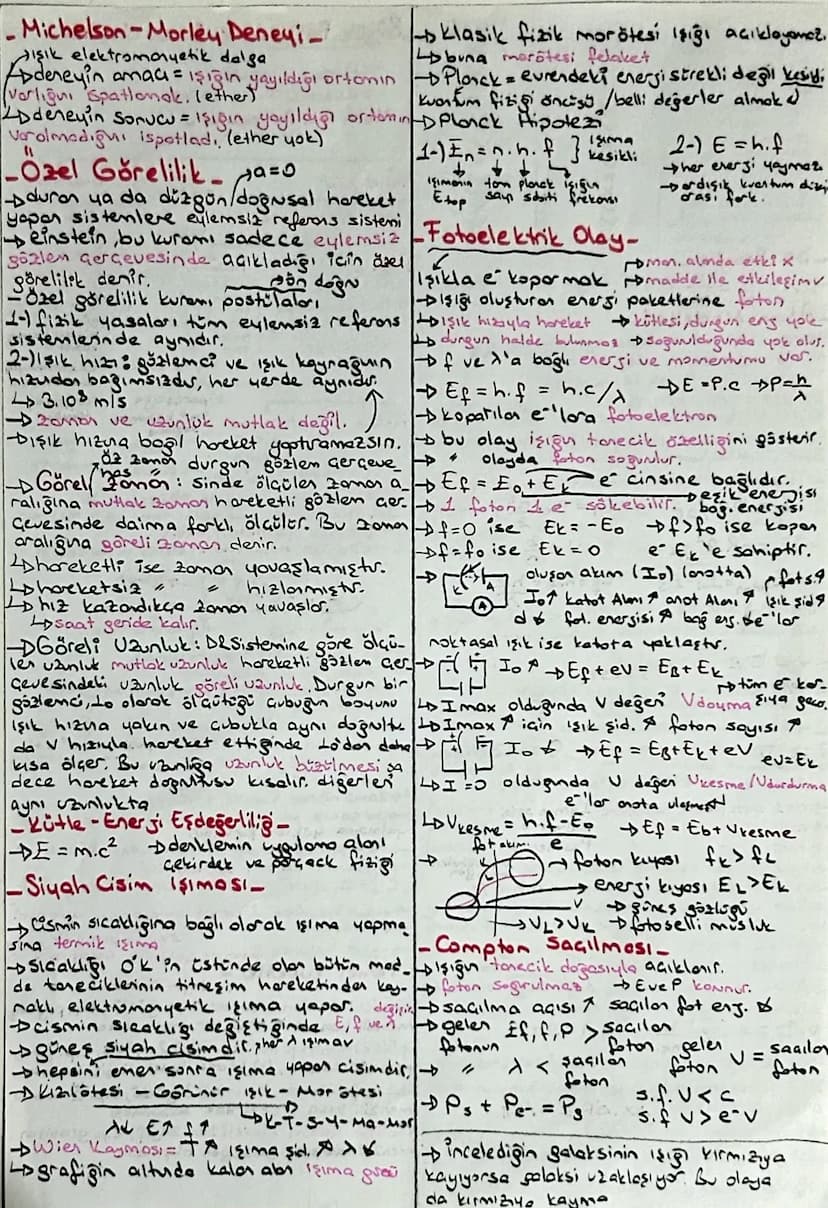 - Michelson - Morley Deneyi -
↗ışık elektromanyetik dalga
↳deneyin amacı = ışığın yayıldığı ortamın
varlığını ispatlamak. (ether)
↳deneyin sonucu = ışığın yayıldığı ortamın
varolmadığını ispatladı, (ether yok)
- Özel Görelilik - →a=0
→duran ya da düzgün/doğrusal hareket
yapan sistemlere eylemsiz referans sistemi
→einstein, bu kuramı sadece eylemsiz
gözlem çerçevesinde açıkladığı için özel
görelilik denir.
- Özel görelilik kuramı postülaları
1-) fizik yasaları tüm eylemsiz referans
sistemlerinde aynıdır.
2-) Işık hızı: gözlemci ve ışık kaynağının
hızından bağımsızdır, her yerde aynıdır.
↳ 3.10⁸ m/s
→ zaman ve uzunluk mutlak değil.
→ışık hızına bağıl hareket yaptıramazsın.
öz zaman
has
durgun gözlem çerçeve
→Göreli zaman: sinde ölçülen zaman a-
ralığına mutlak zaman hareketli gözlem çer-
çevesinde daima farklı ölçülür. Bu zaman
aralığına göreli zaman denir.
↳hareketli ise zaman yavaşlamıştır.
↳hareketsiz " " hızlanmıştır.
↳ hız kazandıkça zaman yavaşlar.
↳saat geride kalır.
→Göreli Uzunluk: D&Sistemine göre ölçü-
len uzunluk mutlak uzunluk hareketli gözlem çer-
çevesindeki uzunluk göreli uzunluk. Durgun bir
gözlemci, Lo olarak ölçtüğü çubuğun boyunu
ışık hızına yakın ve çubukla aynı doğrultu
da V hızıyla hareket ettiğinde Lo'dan daha
kısa ölçer. Bu uzunluğa uzunluk büzülmesi sa
dece hareket doğrultusu kısalır. diğerleri
aynı uzunlukta
- Kütle - Enerji Eşdeğerliliği -
→E = m.c² →denklemin uygulama alanı
çekirdek ve parçacık fiziği
- Siyah Cisim Işıması -
→Cismin sıcaklığına bağlı olarak ışıma yapma
sına termik ışıma
→Sıcaklığı 0°K'in üstünde olan bütün mad-
de taneciklerinin titreşim hareketinden kay-
naklı, elektromanyetik ışıma yapar.
→cismin sıcaklığı değiştiğinde E, f ve λ değişir
→güneş siyah cisimdir, her λ ışıma v
→hepsini emer sonra ışıma yapan cisimdir.
→Kızılötesi - Görünür ışık - Mor ötesi
λ↓ E↑ f↑ ↳K-T-S-Y-Ma-Mor
→Wien Kayması = T↑ ışıma şid.↑ λ↓
↳grafiğin altında kalan alan ışıma gücü
→Klasik fizik morötesi ışığı açıklayamaz.
↳buna morötesi felaket
→Planck = evrendeki enerji sürekli değil kesikli
kuantum fiziği öncüsü /belli değerler almak
→Planck Hipotezi
1-) En = n.h.f } ışıma kesikli 2-) E = h.f
↓ ↓ ↓ ↓ →her enerji yaymaz
ışımanın tam planck ışığın →ardışık kuantum düzeyi
Etop sayı sabiti frekansı arası fark.
- Fotoelektrik Olay -
→man. alanda etki x
Işıkla e⁻ koparmak →madde ile etkileşim v
→Işığı oluşturan enerji paketlerine foton
↳ışık hızıyla hareket →kütlesi, durgun enj yok
↳durgun halde bulunmaz →soğurulduğunda yok olur.
→f ve λ'a bağlı enerji ve momentumu var.
→ Ef = h.f = h.c/λ →E = P.c →P = h/λ
→koparılan e⁻'lara fotoelektron
→bu olay ışığın tanecik özelliğini gösterir.
→ " olayda foton soğurulur.
→ Ef = E0 + Ek e⁻ cinsine bağlıdır.
→eşik enerjisi
bağ. enerjisi
→ 1 foton 1 e⁻ sökebilir.
→f=0 ise Ek = -E0 →f>f0 ise kopan
→f=f0 ise Ek = 0 e⁻ Ek'e sahiptir.
→ K A oluşan akım (I0) (anotta) fot s.↑
A I0↑ katot Alanı↑ anot Alanı↑ ışık şid↑
d↓ fot. enerjisi↑ bağ enj.↓ e⁻'lar
noktasal ışık ise katota yaklaştır.
→ I0↑ →Ef + eV = EB + Ek
→tüm e⁻ kar-
↳Imax olduğunda V değeri Vdoyma şıya geçer.
↳Imax↑ için ışık şid.↑ foton sayısı↑
→ I0↓ →Ef = EB + Ek + eV
eV = Ek
↳I = 0 olduğunda V değeri Vkesme/Vdurdurma
e⁻'lar anota ulaşmadı
↳Vkesme = h.f - E0 / e →Ef = Eb + Vkesme
fot akım.
→ →foton kıyası fK > fL
→energi kıyası EL > EK
→güneş gözlüğü
→VL > VK →fotoselli musluk
- Compton Saçılması -
→Işığın tanecik doğasıyla açıklanır.
→foton soğurulmaz →E ve P korunur.
→saçılma açısı↑ saçılan fot enj.↓
→gelen fotonun Ef, f, P > saçılan foton gelen foton V = saçılan foton
→ " λ < saçılan foton
→ Ps + Pe⁻ = Ps s.f. V < c
s.f V > e⁻ V
→ İncelediğin galaksinin ışığı kırmızıya
kayıyorsa galaksi uzaklaşıyor. Bu olaya
da kırmızıya kayma